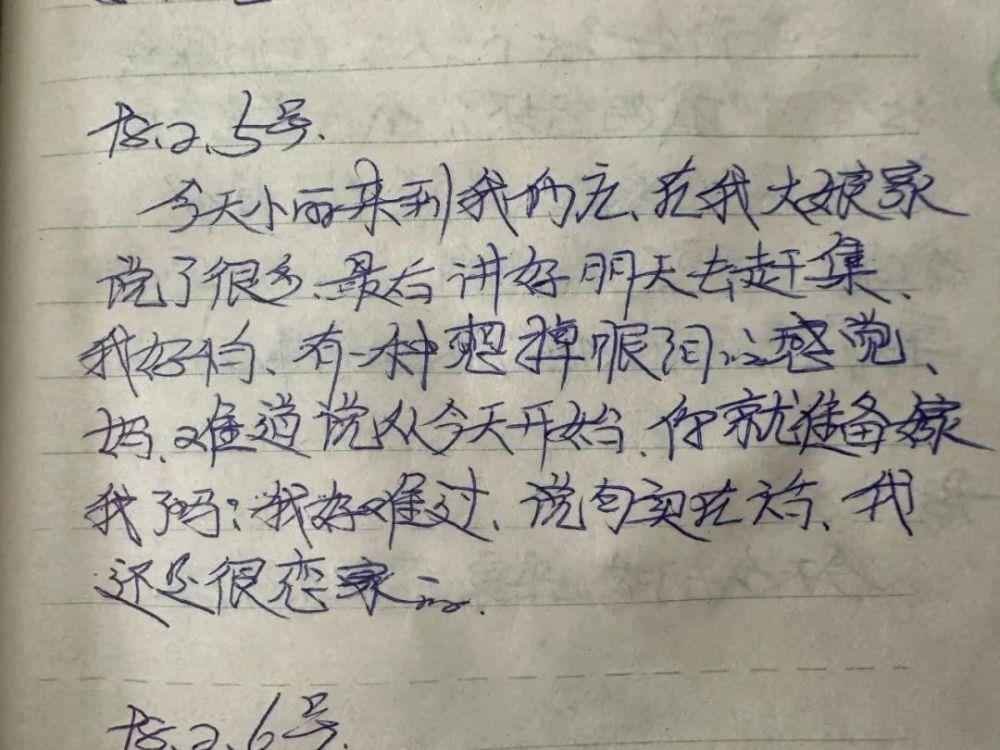 2.5号.
今天小丽来到我们庄、在我大娘家
说了很多、最后讲好明天去赶集、
我好怕、有一种想掉眼泪的感觉、
妈、难道说从今天开始、你就准备嫁
我了吗?我好难过、说句实在话、我
还是很恋家的.
2.6号.